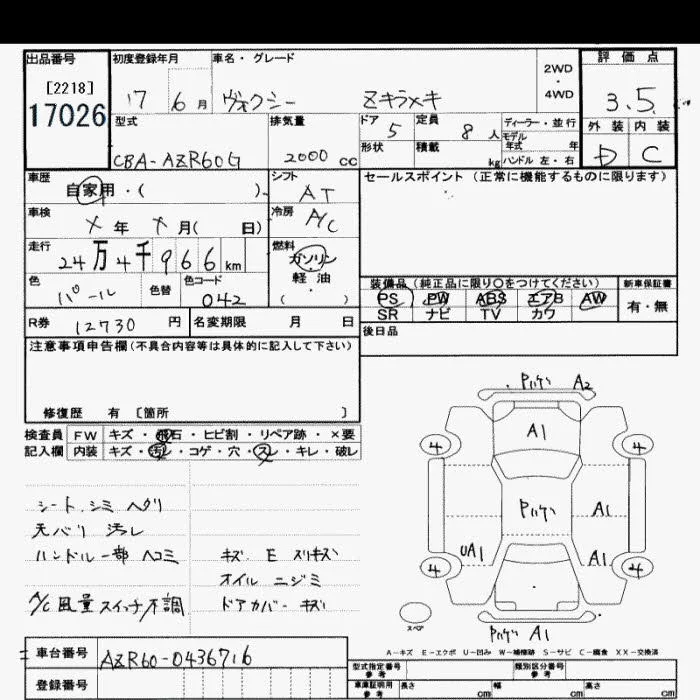 出品番号
[2218]
17026
初度登録年月 車名・グレード
17 6 月 ヴォクシー Zキラメキ
2WD・4WD
評価点
3.5
外装 内装
D C
型式 排気量
CBA-AZR60G 2000 CC
ドア 5 定員 8 人
形状 積載 kg
ディーラー・並行
モデル年式 年
ハンドル 左・右
車歴
自家用・( )
シフト
AT
車検
年 月( 日)
冷房
A/C
走行
24万4千966km
燃料
ガソリン・軽油
( ・ )
色 色替 色コード
パール 042
セールスポイント (正常に機能するものに限ります)
装備品(純正品に限り○をつけてください)
PS PW ABS エアB AW
SR ナビ TV カワ
新車保証書
有・無
後日品
R券 12730 円 名変期限 月 日
注意事項申告欄(不具合内容等は具体的に記入して下さい)
修復歴 有 [箇所 ]
検査員記入欄
FW キズ・飛石・ヒビ割・リペア跡・×要
内装 キズ・汚レ・コゲ・穴・スレ・キレ・破レ
シート シミ ヘタリ
天バリ 汚レ
ハンドル一部 ヘコミ
A/C 風量 スイッチ不調
キズ E スリキズ
オイル ニジミ
ドアカバー キズ
A2
A1
4 4
A1
UA1 A1
4 4
スペア
A1
A-キズ E-エクボ U-凹み W-補修跡 S-サビ C-腐食 XX-交換済
車台番号 AZR60-0436716
登録番号
型式指定番号 参考
類別区分番号 参考
車庫証明用 参考 長さ cm 幅 cm 高さ cm